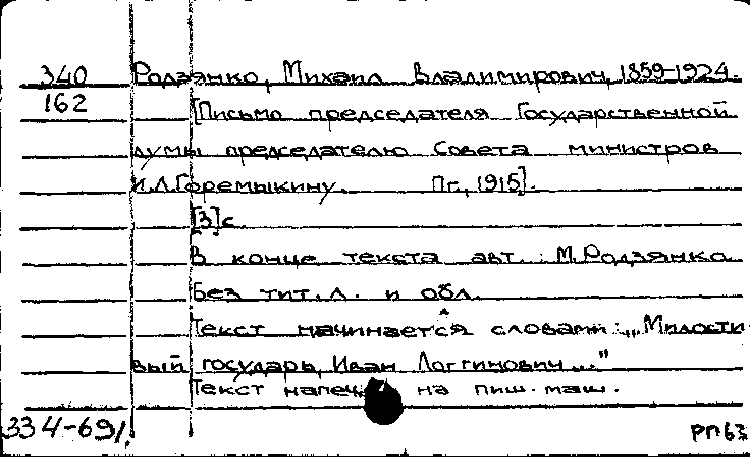 340 Родзянко, Михаил Владимирович, 1859-1924.
162 [Письмо председателя Государственной
думы председателю Совета министров
И.Л.Горемыкину. Пг., 1915].
[3]с.
В конце текста авт.: М.Родзянко
Без тит.л. и обл.
Текст начинается словами: „Милости
вый государь, Иван Логгинович..."
Текст напеч. на пиш. маш.
334-69/. РП63